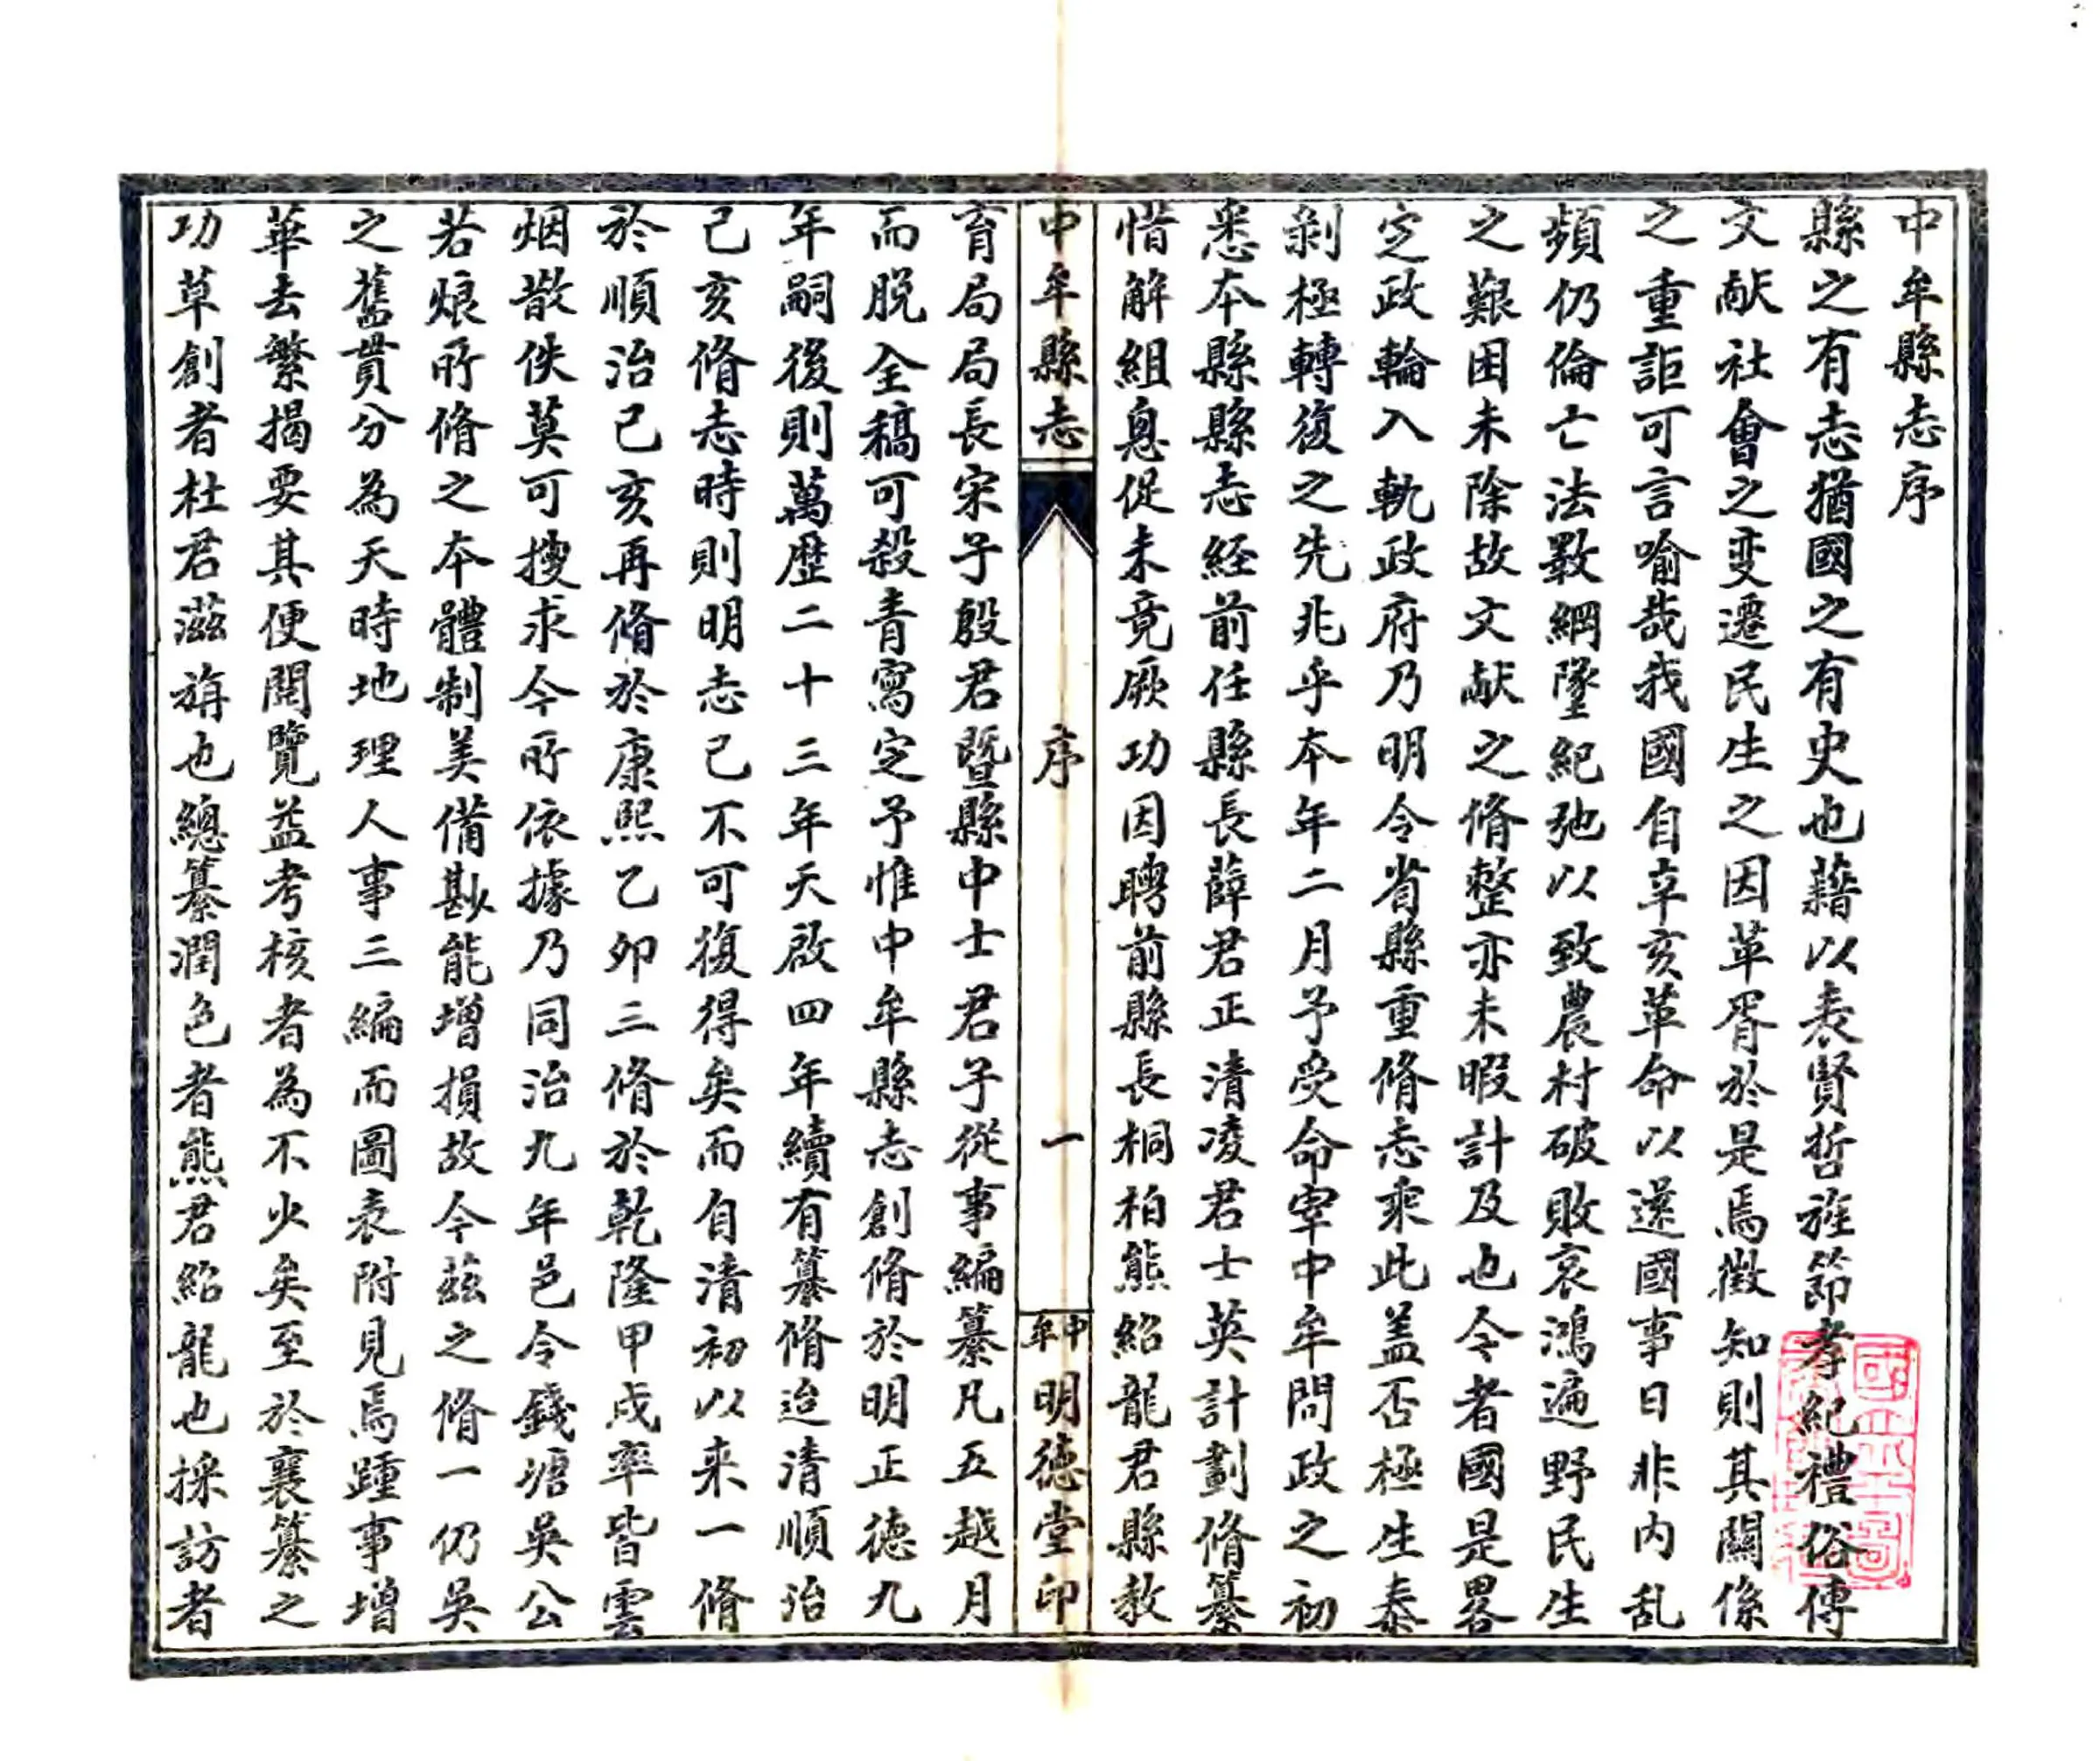 中牟縣志序
縣之有志猶國之有史也藉以表賢哲旌節孝紀禮俗傳
文献社會之变遷民生之因革胥於是焉徵知則其關係
之重詎可言喻哉我國自辛亥革命以還國事日非内乱
頻仍倫亡法斁綱墜紀弛以致農村破敗哀鴻遍野民生
之艱困未除故文献之脩整亦未暇計及也今者國是畧
定政輪入軌政府乃明令省縣重脩志乘此盖否極生泰
剥極轉復之先兆乎本年二月予受命宰中牟問政之初
悉本縣縣志経前任縣長薛君正清凌君士英計劃脩纂
惜解組息促未竟厥功因聘前縣長桐柏熊紹龍君縣教
中牟縣志
序
一
中牟明德堂印
育局局長宋子殷君暨縣中士君子従事編纂凡五越月
而脱全稿可殺青寫定予惟中牟縣志創脩於明正德九
年嗣後則萬歷二十三年天啟四年續有纂脩迨清順治
己亥脩志時則明志已不可復得矣而自清初以来一脩
於順治己亥再脩於康熙乙卯三脩於乾隆甲戌率皆雲
烟散佚莫可搜求今所依據乃同治九年邑令錢塘吳公
若烺所脩之本體制美備尠能增損故今茲之脩一仍吳
之舊貫分為天時地理人事三編而圖表附見焉踵事增
華去繁揭要其便閱覽益考核者為不少矣至於襄纂之
功草創者杜君滋旃也總纂潤色者熊君紹龍也採訪者